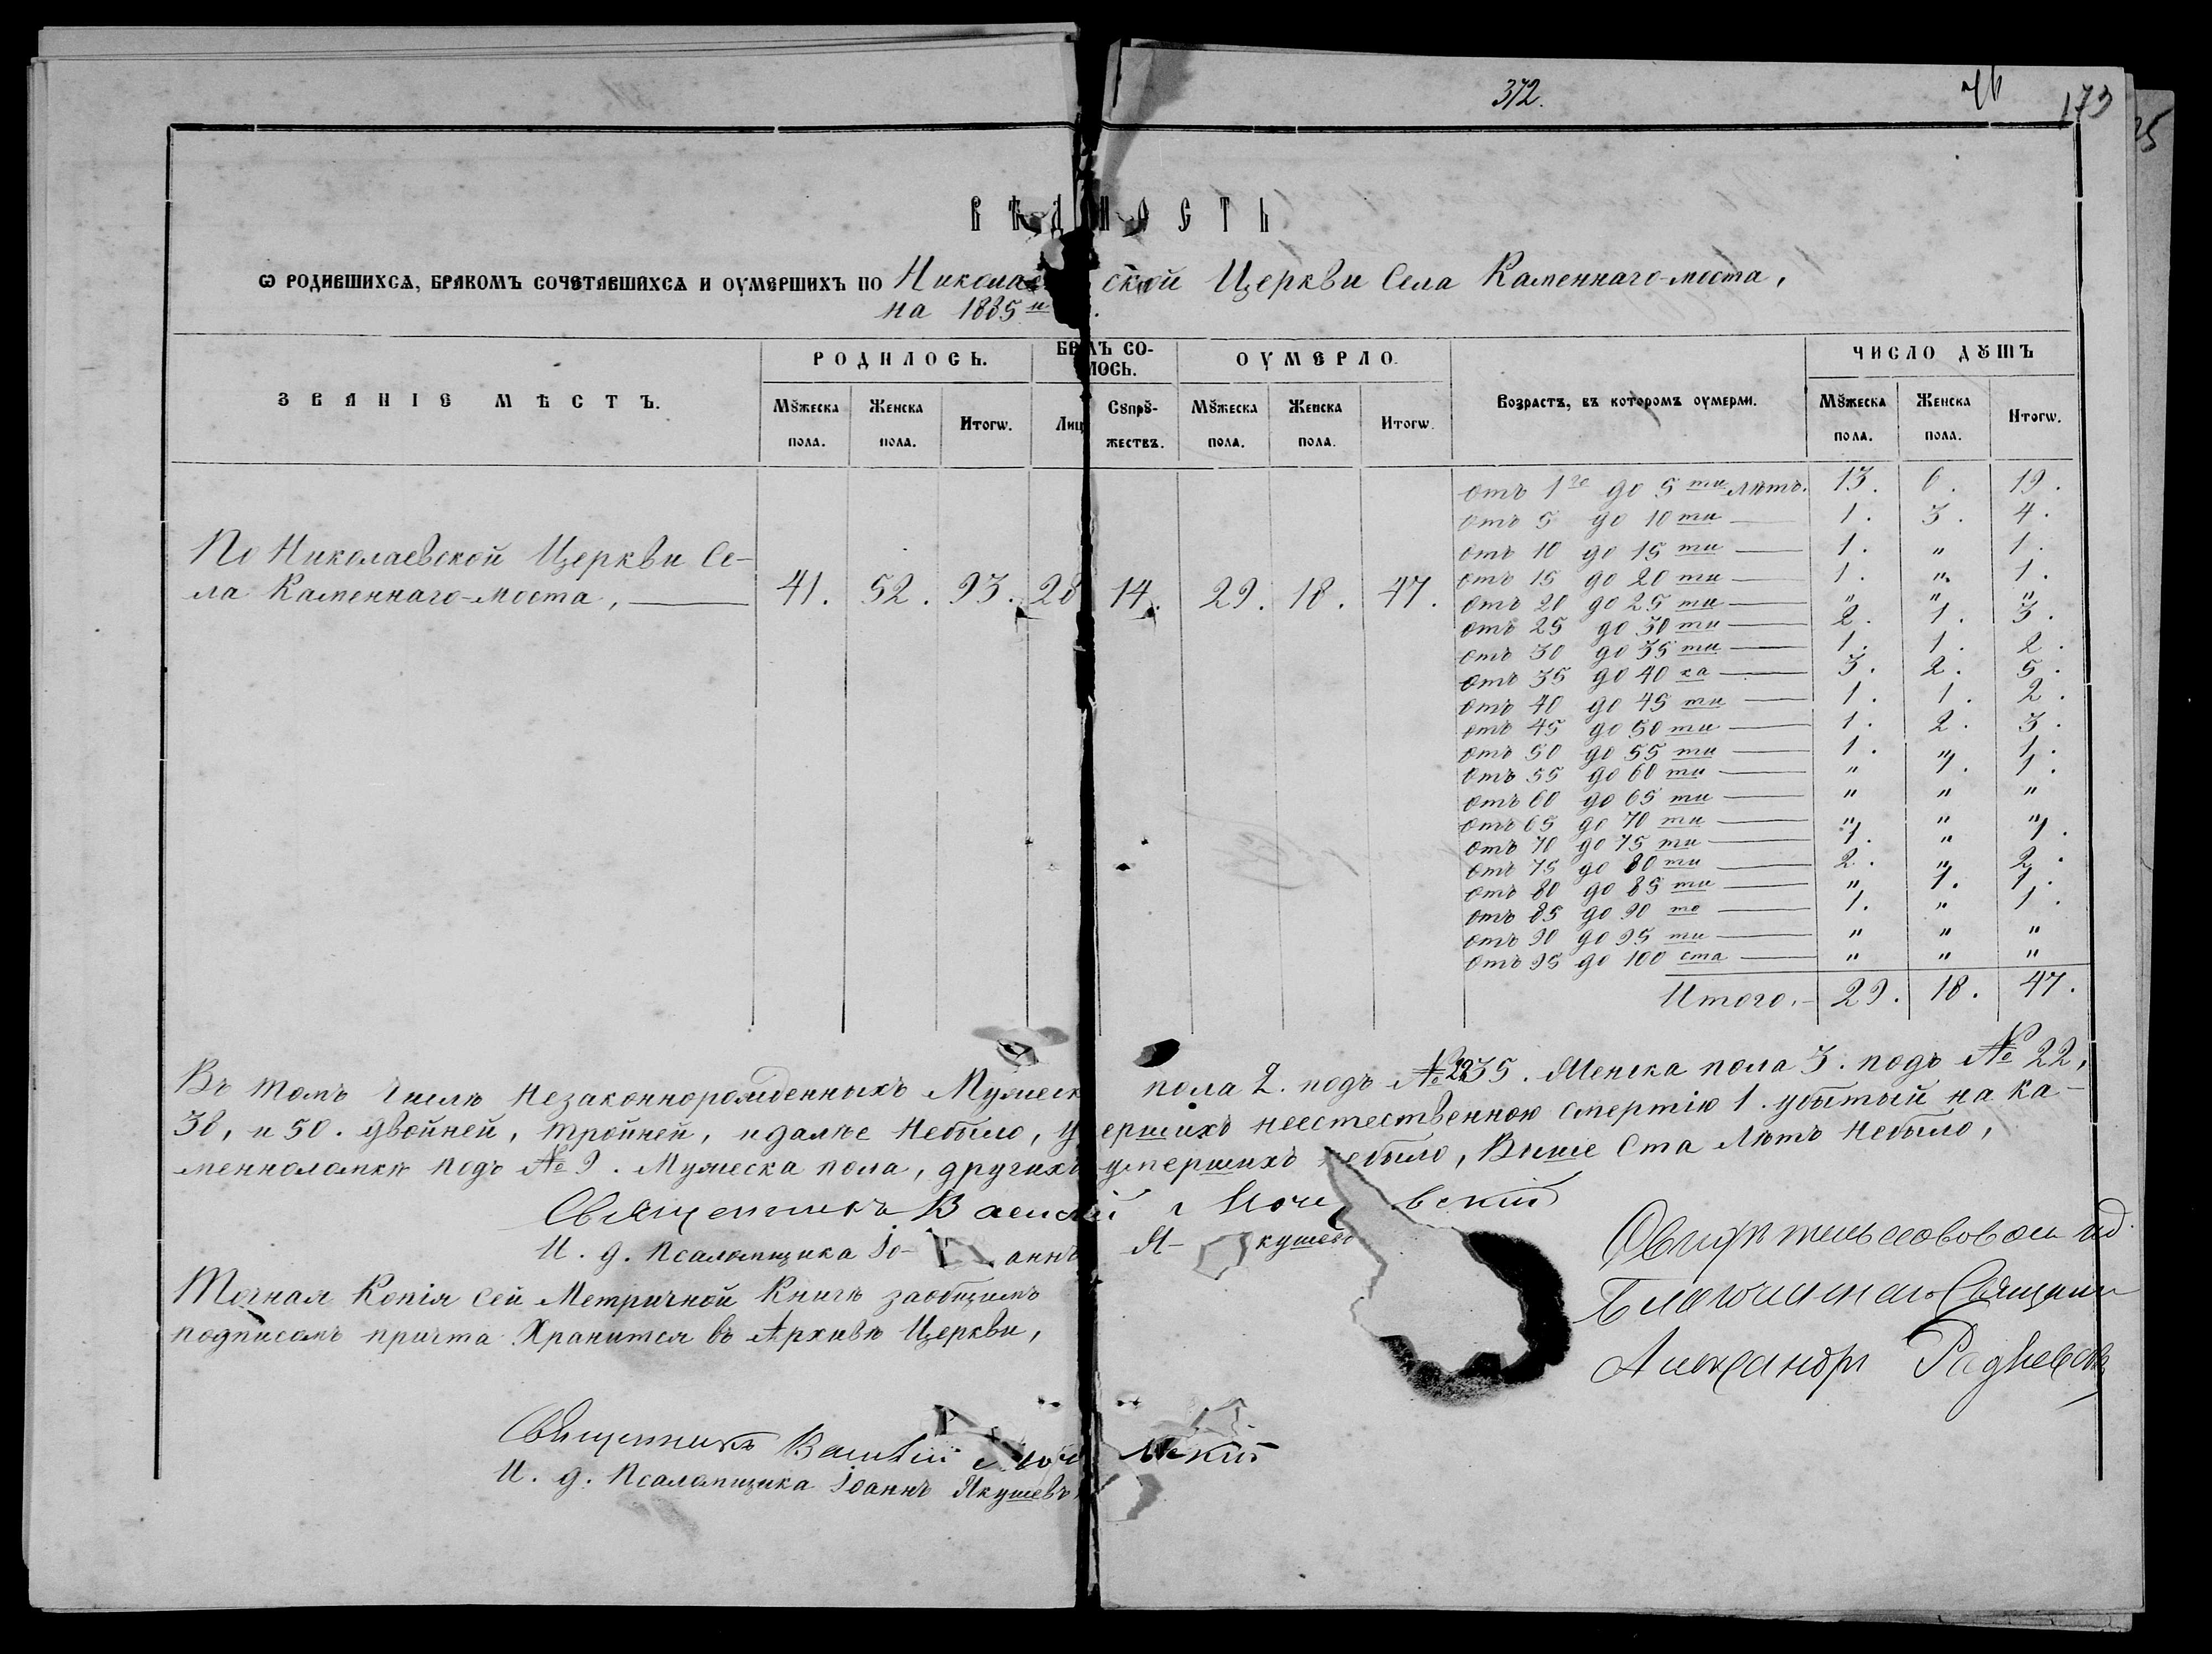 372.
46
173
ВѢДОМОСТЬ
Ѡ РОДИВШИХСѦ, БРАКОМЪ СОЧЕТАВШИХСѦ И ОУМЕРШИХЪ ПО Николаевской Церкви Села Каменнаго-моста,
на 1885 й
ЗВАНІЕ МѢСТЪ. РОДИЛОСЬ. БРАКОМЪ СО- ОУМЕРЛО. Возрастъ, въ которомъ оумерли. ЧИСЛО ДꙊШЪ
Мꙋжеска пола. Женска пола. Итогѡ. Лицъ Сꙋпрꙋ-жествъ. Мꙋжеска пола. Женска пола. Итогѡ. Мꙋжеска пола. Женска пола. Итогѡ.
По Николаевской Церкви Се-
ла Каменнаго-моста, 41. 52. 93. 28 14. 29. 18. 47.
отъ 1го до 5 ти лѣтъ. 13. 6. 19.
отъ 5 до 10 ти 1. 3. 4.
отъ 10 до 15 ти 1. " 1.
отъ 15 до 20 ти 1. " 1.
отъ 20 до 25 ти " " "
отъ 25 до 30 ти 2. 1. 3.
отъ 30 до 35 ти 1. 1. 2.
отъ 35 до 40 ка 3. 2. 5.
отъ 40 до 45 ти 1. 1. 2.
отъ 45 до 50 ти 1. 2. 3.
отъ 50 до 55 ти 1. " 1.
отъ 55 до 60 ти " 1. 1.
отъ 60 до 65 ти " " "
отъ 65 до 70 ти " " "
отъ 70 до 75 ти 1. " 1.
отъ 75 до 80 ти 2. " 2.
отъ 80 до 85 ти " 1. 1.
отъ 85 до 90 то 1. " 1.
отъ 90 до 95 ти " " "
отъ 95 до 100 ста " " "
Итого. 29. 18. 47.
Въ томъ числѣ незаконнорожденныхъ Мужеск пола 2. подъ № 35. Женска пола 3. подъ № 22,
38, и 50. двойней, тройней, и далѣе небыло, умершихъ неестественною смертію 1. убитый на ка-
менноломнѣ подъ № 9. Мужеска пола, другихъ умершихъ небыло, Выше Ста лѣтъ небыло,
Священникъ Василій
И. д. Псаломщика Іоаннъ Якушевъ
Точная Копія сей Метричной Книги заобщимъ
подписомъ причта хранится въ Архивѣ Церкви,
Священникъ Василій
И. д. Псаломщика Іоаннъ Якушевъ
Благочинный Священник
Александръ